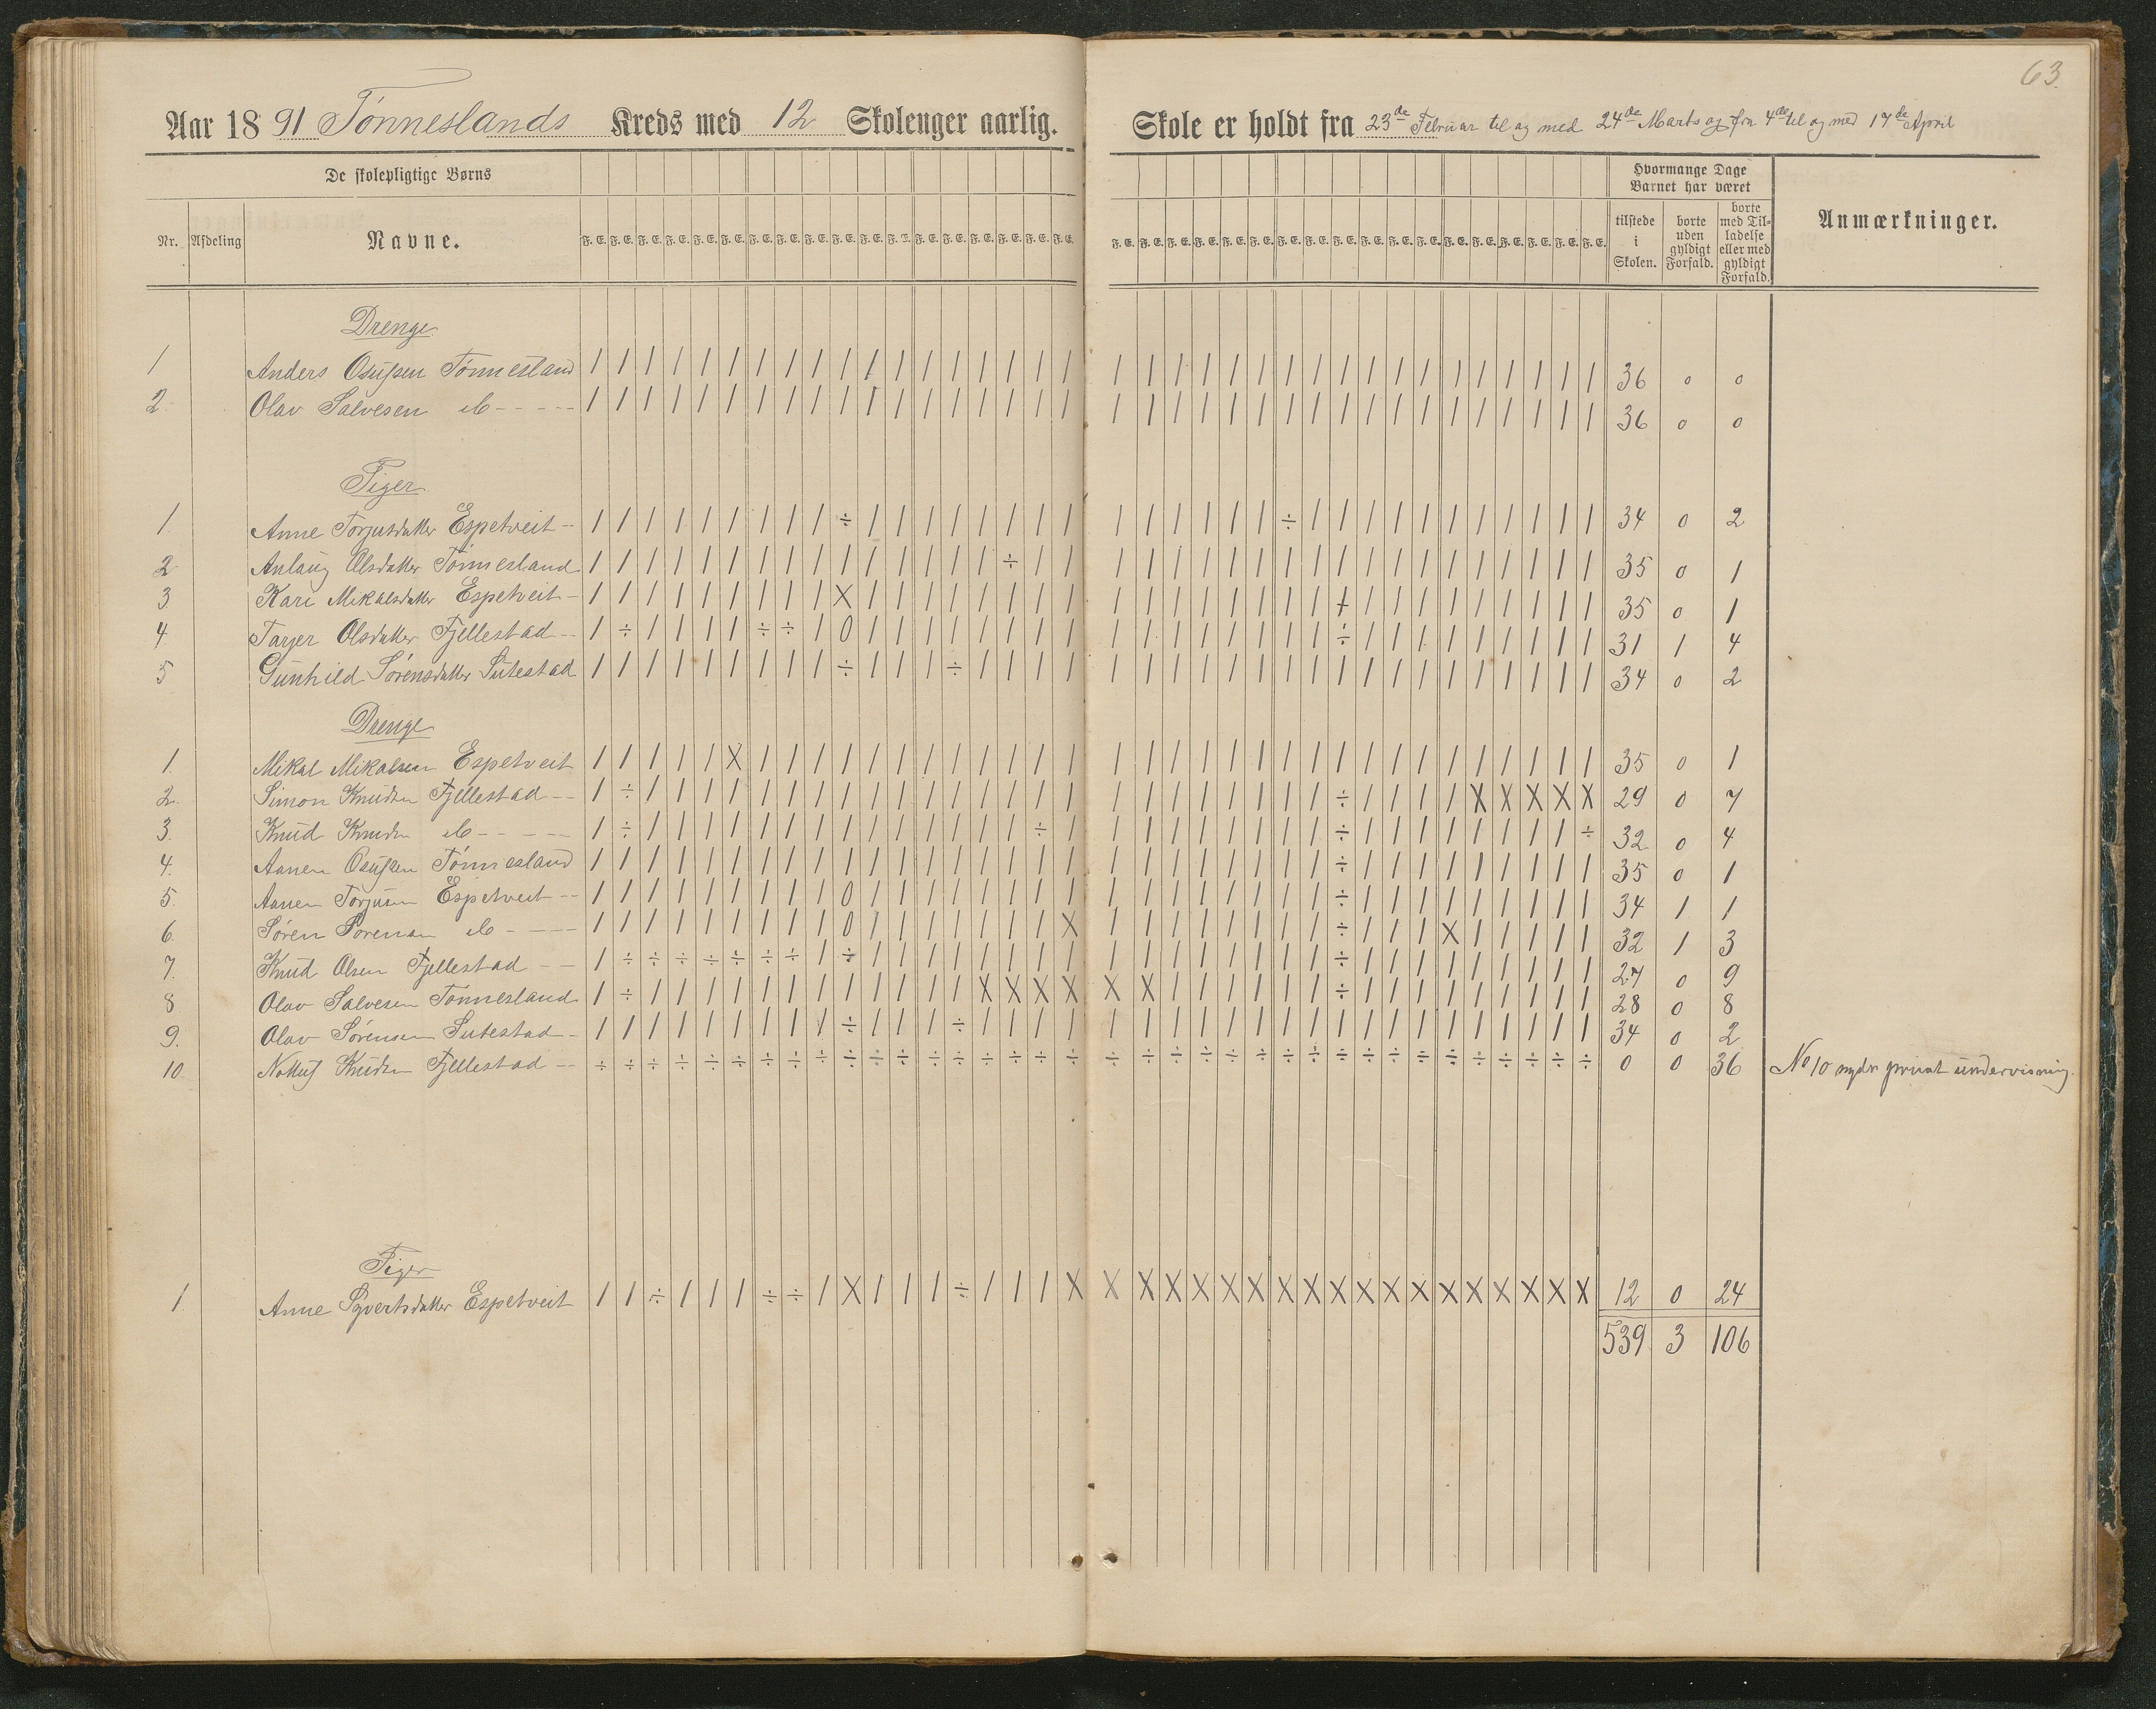 63
Aar 1891 Tønneslands Kreds med 12 Skoleuger aarlig. Skole er holdt fra 23de Februar til og med 24de Marts og fra 4de til og med 17de April
De skolepligtige Børns
Hvormange Dage Barnet har været
Nr. Afdeling Navne. F. E. F. E. F. E. F. E. F. E. F. E. F. E. F. E. F. E. F. E. F. E. F. E. F. E. F. E. F. E. F. E. F. E. F. E. F. E. F. E. F. E. F. E. F. E. F. E. F. E. F. E. F. E. F. E. F. E. F. E. F. E. F. E. F. E. F. E. F. E. F. E. tilstede i Skolen. borte uden gyldigt Forfald. borte med Tilladelse eller med gyldigt Forfald. Anmærkninger.
Drenge
1 Anders Osufsen Tønnesland / / / / / / / / / / / / / / / / / / / / / / / / / / / / / / / / / / / / 36 0 0
2 Olav Salvesen do - - - - - / / / / / / / / / / / / / / / / / / / / / / / / / / / / / / / / / / / / 36 0 0
Piger
1. Anne Torjusdatter Espetveit - - / / / / / / / / / ÷ / / / / / / / / / / / / / / ÷ / / / / / / / / / / / 34 0 2
2 Anlaug Olsdatter Tønnesland / / / / / / / / / / / / / / / ÷ / / / / / / / / / / / / / / / / / / / / 35 0 1
3 Kari Mikalsdatter Espetveit - / / / / / / / / / X / / / / / / / / / / / / / / / / + / / / / / / / / / 35 0 1
4 Tarjer Olsdatter Fjellestad - - / ÷ / / / / ÷ ÷ / 0 / / / / / / / / / / / / / / / / ÷ / / / / / / / / / 31 1 4
5 Gunhild Sørensdatter Sutestad / / / / / / / / / ÷ / / / ÷ / / / / / / / / / / / / / / / / / / / / / / 34 0 2
Drenge
1. Mikal Mikalsen Espetveit / / / / / X / / / / / / / / / / / / / / / / / / / / / / / / / / / / / / 35 0 1
2. Simon Knudsen Fjellestad - - / ÷ / / / / / / / / / / / / / / / / / / / / / / / / ÷ / / / / X X X X X 29 0 7
3. Knud Knudsen do - - - - - / ÷ / / / / / / / / / / / / / / ÷ / / / / / / / / / ÷ / / / / / / / / ÷ 32 0 4
4. Aanen Osufsen Tønnesland / / / / / / / / / / / / / / / / / / / / / / / / / / ÷ / / / / / / / / / 35 0 1
5. Aanen Torjusen Espetveit - - / / / / / / / / / 0 / / / / / / / / / / / / / / / / ÷ / / / / / / / / / 34 1 1
6. Søren Sørensen do - - - - / / / / / / / / / 0 / / / / / / / X / / / / / / / / ÷ / / / X / / / / / 32 1 3
7. Knud Olsen Fjellestad - - / ÷ ÷ ÷ ÷ ÷ ÷ ÷ / ÷ / / / / / / / / / / / / / / / / ÷ / / / / / / / / / 27 0 9
8 Olav Salvesen Tønnesland / ÷ / / / / / / / / / / / / X X X X X X / / / / / / ÷ / / / / / / / / / 28 0 8
9. Olav Sørensen Sutestad - / / / / / / / / / ÷ / / / ÷ / / / / / / / / / / / / / / / / / / / / / / 34 0 2
10 Fjellestad - - ÷ ÷ ÷ ÷ ÷ ÷ ÷ ÷ ÷ ÷ ÷ ÷ ÷ ÷ ÷ ÷ ÷ ÷ ÷ ÷ ÷ ÷ ÷ ÷ ÷ ÷ ÷ ÷ ÷ ÷ ÷ ÷ ÷ ÷ ÷ ÷ 0 0 36 No 10 nyder privat undervisning.
Piger
1. Anne Syvertsdatter Espetveit / / ÷ / / / ÷ ÷ / X / / / ÷ / / / X X X X X X X X X X X X X X X X X X X 12 0 24
539 3 106